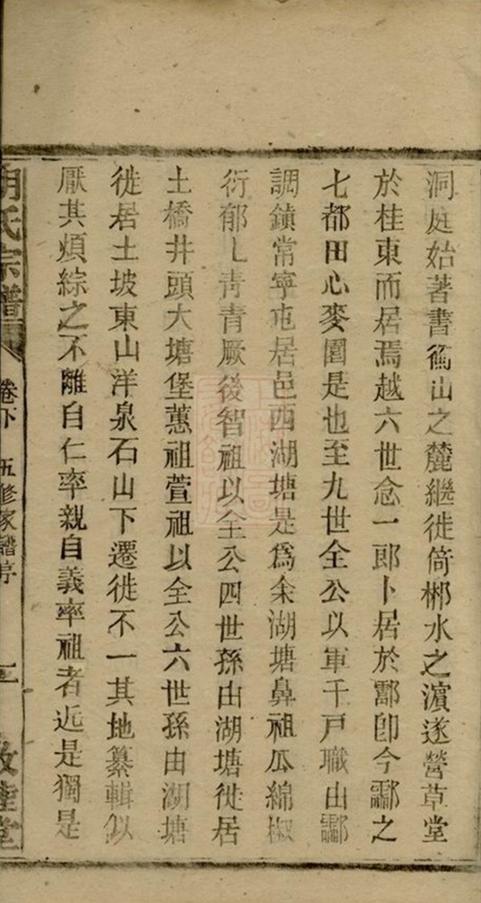 洞庭始著書衡山之麓繼徙倚郴水之濵遂營草堂
於桂東而居焉越六世念一郎卜居於酃卽今酃之
七都田心麥園是也至九世全公以軍千戸職由酃
調鎮常寧屯居邑西湖塘是爲余湖塘鼻祖瓜綿椒
衍郁乚靑靑厥後智祖以全公四世孫由湖塘徙居
土橋井頭大塘堡蕙祖萱祖以全公六世孫由湖塘
徙居土坡東山洋泉石山下遷徙不一其地纂輯以
厭其煩綜之不離自仁率親自義率祖者近是獨是
胡氏宗譜 卷下 五修家譜序 二 敦睦堂